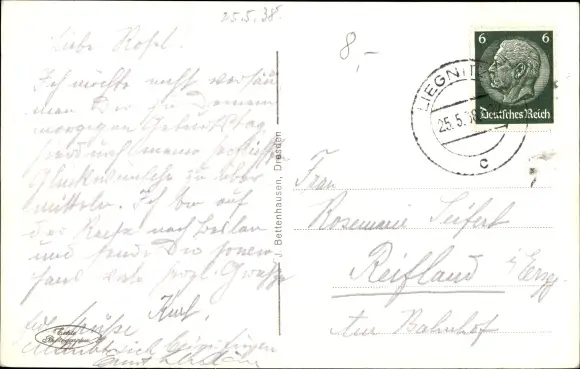 25.5.38.
Liebe Rosel!
Ich möchte nicht versäu
men Dir zu Deinem
morgigen Geburtstag
hierdurch meine
Glückwünsche zu über
mitteln. Ich bin auf
der Reise nach Breslau
und sende Dir
viele herzl. Grüsse
Kurt.
Grüße
Echte
Photographie
J. Bettenhausen, Dresden
8,-
6 6
Deutsches Reich
LIEGNITZ
25.5.38
c
Frau
Rosemarie Seifert
Reifland i/Erzg.
Am Bahnhof